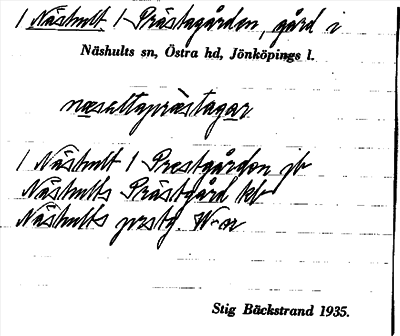 / Näshult / Prästagården, gård i
Näshults sn, Östra hd, Jönköpings l.
næsaltaprästagar
/ Näshult / Prestgården jb
Näshults Prästgård kb
Näshults prstg.
Stig Bäckstrand 1935.